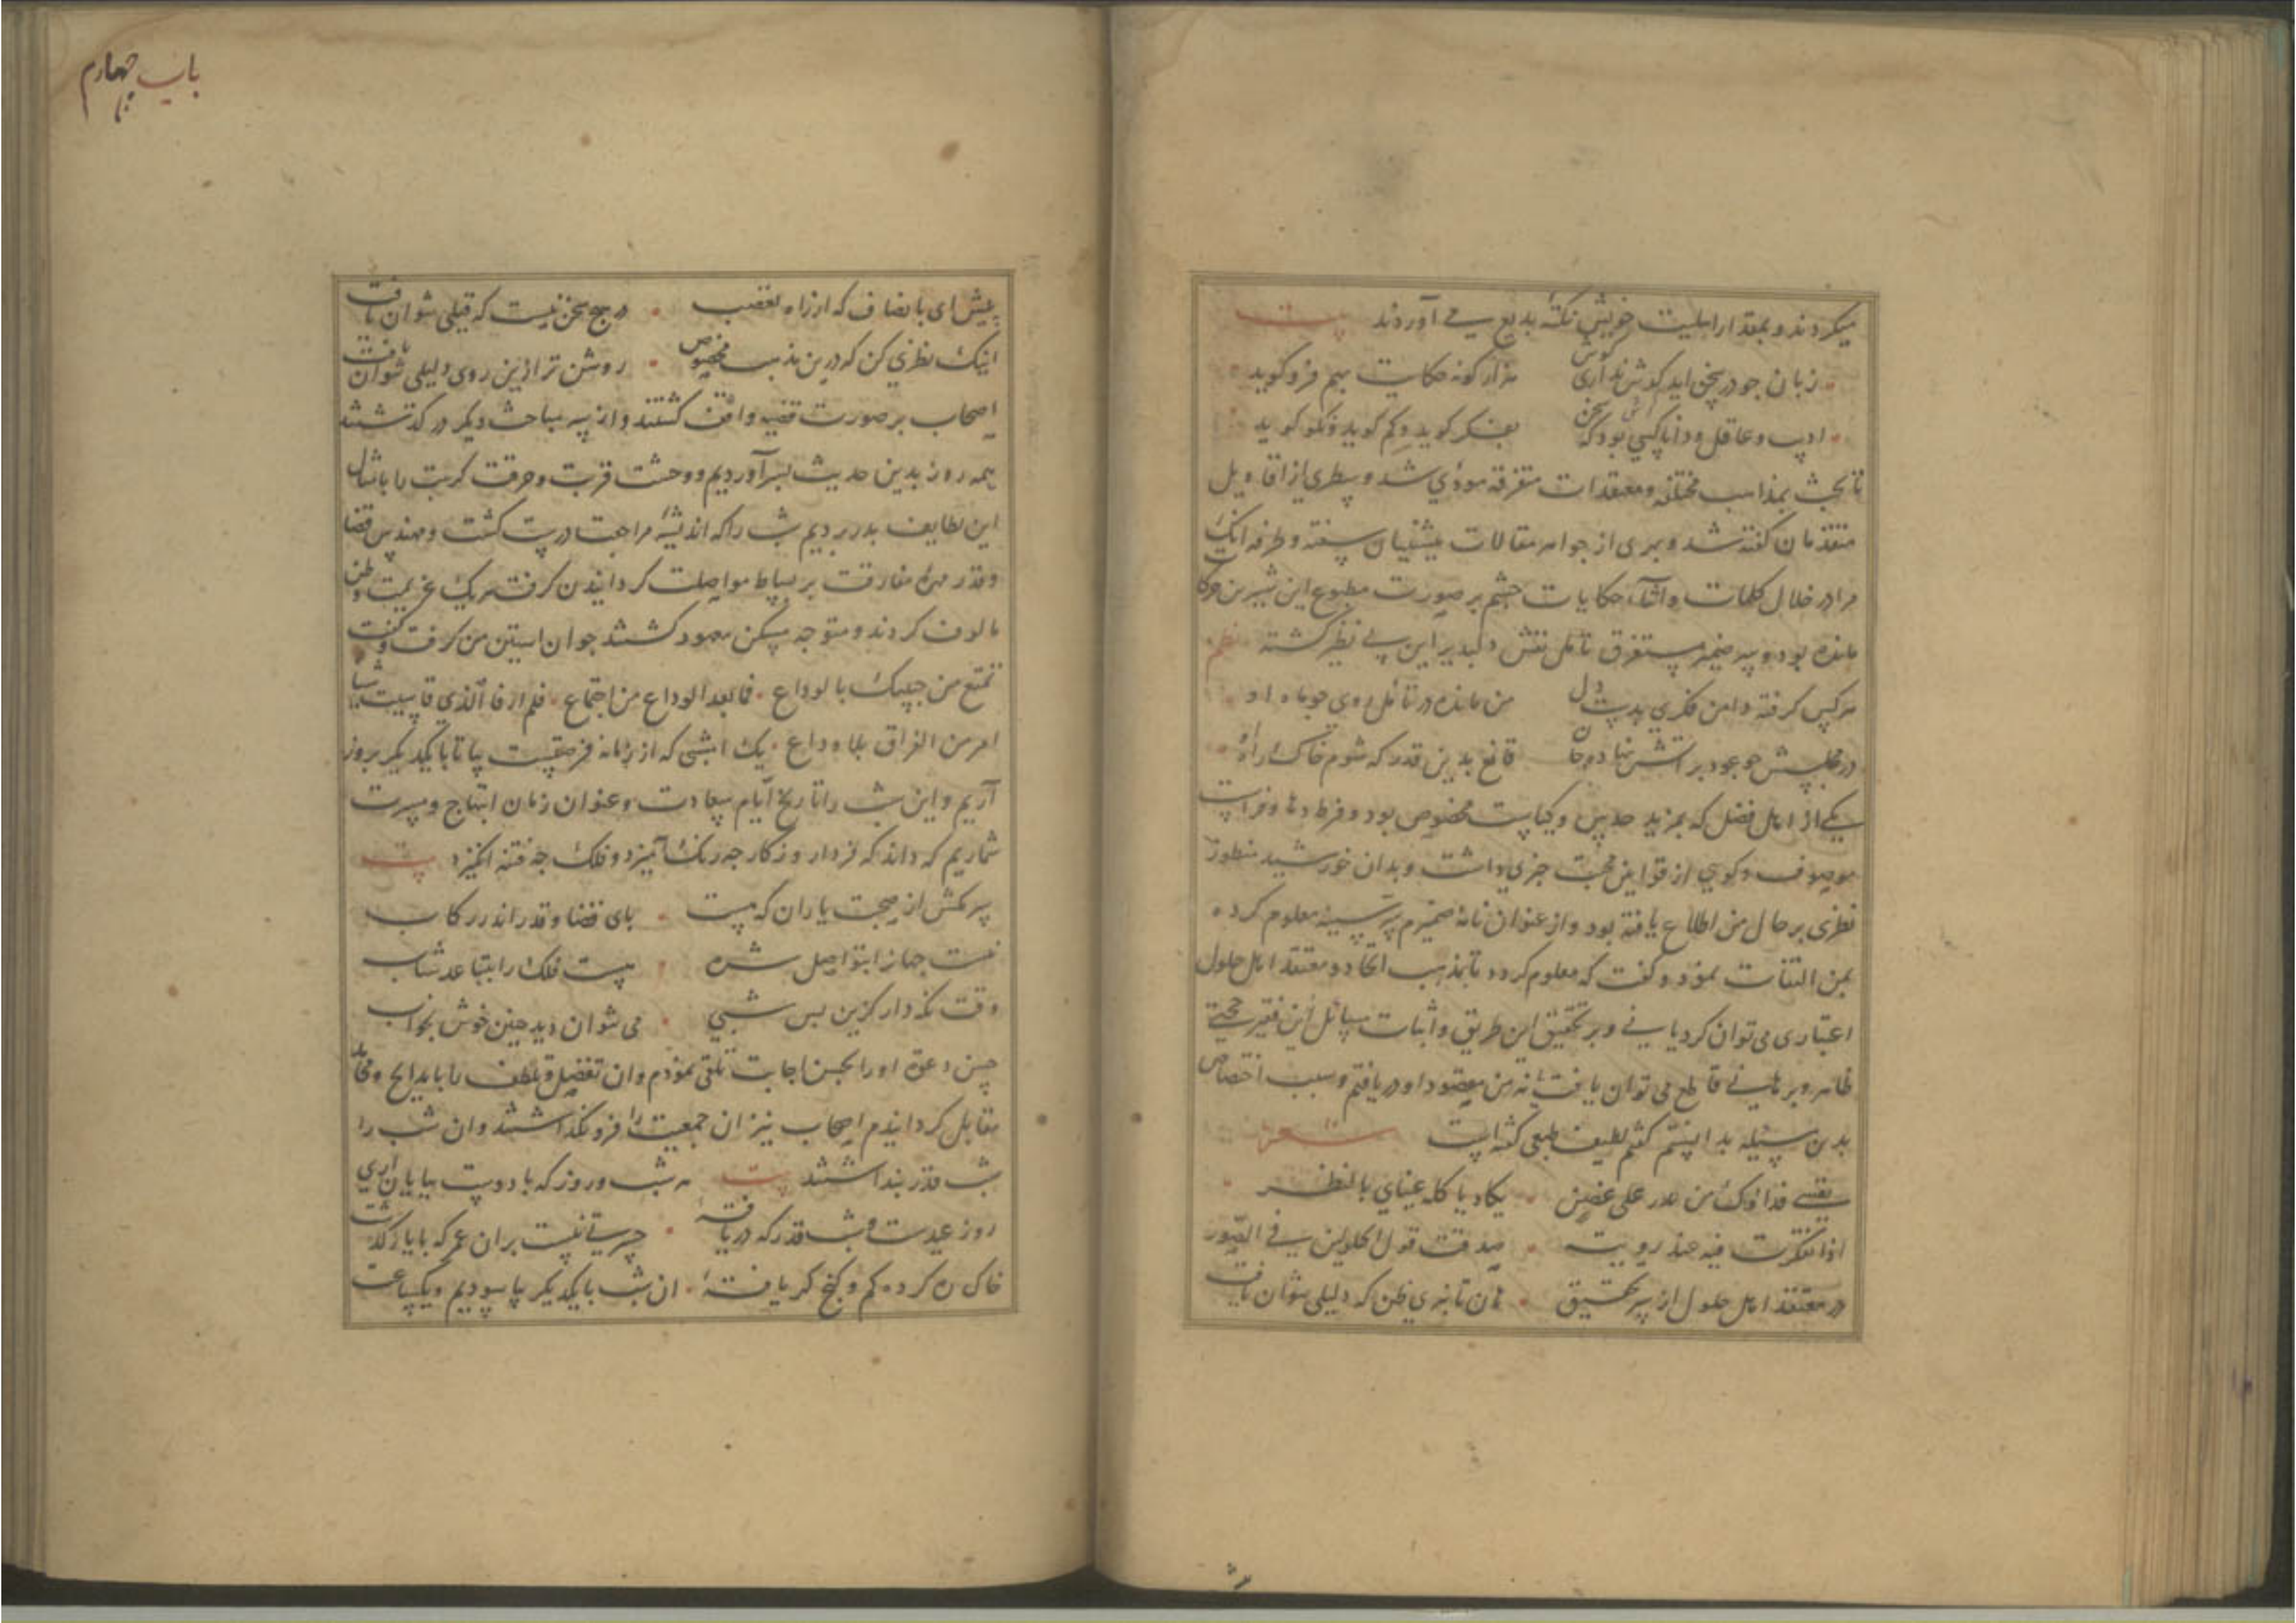 میکردند و بمقدار اهلیت خویش نکته بدیع می آوردند بیت
زبان جو در سخن اید کوش نداری هزار کونه حکایت بهم فرو کوید
ادیب و عاقل و دانا کسی بود که سخن بفکر کوید و کم کوید و نکو کوید
تا بحث بمذاهب مختلفه و معتقدات متفرقه مودی شد و سطری از اقاویل
متقدمان کفته شد و بعری از جواهر مقالات پیشینیان سفته و طرفه انک
مرا در خلال کلمات و اثناء حکایات چشم بر صورت مطبوع این شیرین حرکات
مانده بود و ضمیر مستغرق تامل نقش دلپذیر این بی نظیر کشته نظم
هر کس کرفته دامن فکری بدست دل من مانده در تامل روی جو ماه او
در مجلسش جو عود بر اتش نهاده جان قانع بدین قدر که شوم خاک راه او
یکی از اهل فضل که بمزید حدس و کیاست مخصوص بود و فرط دها و فراست
موصوف و کویی از قوانین محبت جزی داشت و بدان خورشید منظور
نظری بر حال من اطلاع یافته بود و از عنوان نامه ضمیرم سر سینه معلوم کرده
بمن التفات نمود و کفت که معلوم کرده تا بمذهب اتحاد و معتقد اهل حلول
اعتباری می توان کرد یا نی و بر تحقیق این طریق و اثبات مسائل این فقیر حجتی
ظاهر و برهانی قاطع می توان یافت یا نه من مقصود او دریافتم و سبب اختصاص
بدین سئیله بدانستم کفتم لطیف طبعی کفته است شعر
نفسی فداؤک من بدر علی غصن یکاد یاکله عینای بالنظر
اذا تفکرت فیه عند رویته صدقت قول الحلولین فی الصور
در معتقد اهل حلول از سر تحقیق هان تا نبری ظن که دلیلی نتوان یافت
باب چهارم
پیش ای بانصاف که از راه تعصب در هیچ سخن نیست که قیلی نتوان یافت
اینک نظری کن که درین مذهب مخصوص روشن تر ازین روی دلیلی نتوان یافت
اصحاب بر صورت قضیه واقف کشتند و از سر مباحث دیکر در کذشتند
همه روز بدین حدیث بسر آوردیم و وحشت قربت و حرقت کربت را بامثال
این لطایف بدر بردیم شب را که اندیشه مراجعت درست کشت و مهندس قضا
و قدر مهره مفارقت بر بساط مواصلت کردانیدن کرفت هر یک عزیمت وطن
مالوف کردند و متوجه مسکن معهود کشتند جوان استین من کرفت و کفت
تمتع من حبیبک بالوداع فما بعد الوداع من اجتماع فلم ار فی الذی قاسیت شیا
امر من الفراق بلا وداع یک امشبی که از زمانه فرصتست بیا تا با یکدیکر بروز
آریم و این شب را تاریخ ایام سعادت و عنوان زمان ابتهاج و مسرت
شماریم که داند که فردا روزکار جه رنک آمیزد و فلک جه فتنه انکیزد بیت
سر مکش از صحبت یاران که هست بای قضا و قدر اندر رکاب
نیست جهانرا بتواصل شره هست فلک را بتباعد شتاب
وقت نکه دار کزین بس شبی می نتوان دید چنین خوش بخواب
حسن دعوت او را بحسن اجابت تلقی نمودم و ان تفضیل و تلطف را بمدایح و محامد
مقابل کردانیدم اصحاب نیز ان جمعیت را فرو نکذاشتند و ان شب را
شب قدر بنداشتند بیت هر شب و روز که با دوست بپایان اری
روز عیدست و شب قدر که دریافته حسرتی نیست بران عمر که با یار کذشت
خاک ره کرده کم و کنج کهر یافته ان شب با یکدیکر یاسودیم و یکساعت